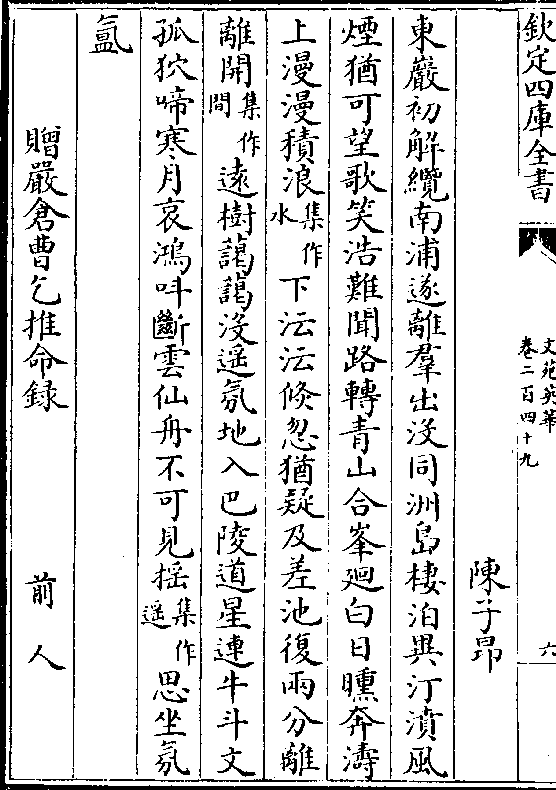 欽定四庫全書
文苑英華
卷二百四十九
六
陳子昂
東巖初解纜南浦遂離羣出没同洲島棲泊異汀濆風
煙猶可望歌笑浩難聞路轉青山合峯廻白日曛奔濤
上漫漫積浪集作水下沄沄倐忽猶疑及差池復兩分離
離開集作間遠樹藹藹没遥氛地入巴陵道星連牛斗文
孤狖啼寒月哀鴻呌斷雲仙舟不可見揺集作遥思坐氛
氲
贈嚴倉曹乞推命録 前人